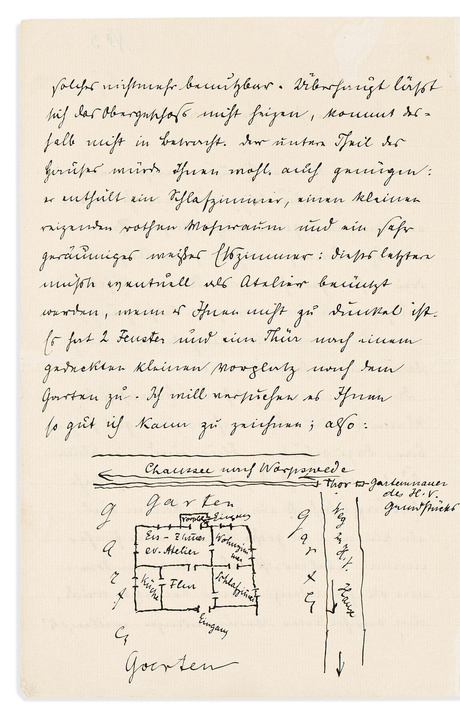 solches nicht mehr benutzbar. Überhaupt läßt
sich das Obergeschoss nicht heizen, kommt des-
halb nicht in Betracht. Der untere Theil des
Hauses würde Ihnen wohl auch genügen:
er enthält ein Schlafzimmer, einen kleinen
reizenden rothen Wohnraum und ein sehr
geräumiges weißes Esszimmer: dieses letztere
müßte eventuell als Atelier benützt
werden, wenn es Ihnen nicht zu dunkel ist.
Es hat 2 Fenster und eine Thür nach einem
gedeckten kleinen Vorplatz nach dem
Garten zu. Ich will versuchen es Ihnen
so gut ich kann zu zeichnen; also:
Chaussee nach Worpswede
Thor
Gartenmauer
des H. V.
Grundstücks
Garten
Vorplatz Eingang
Ess-Zimmer
ev. Atelier
Wohnzimmer
Küche
Flur
Schlafzimmer
Eingang
Garten
Garten
Weg
Haus
Garten